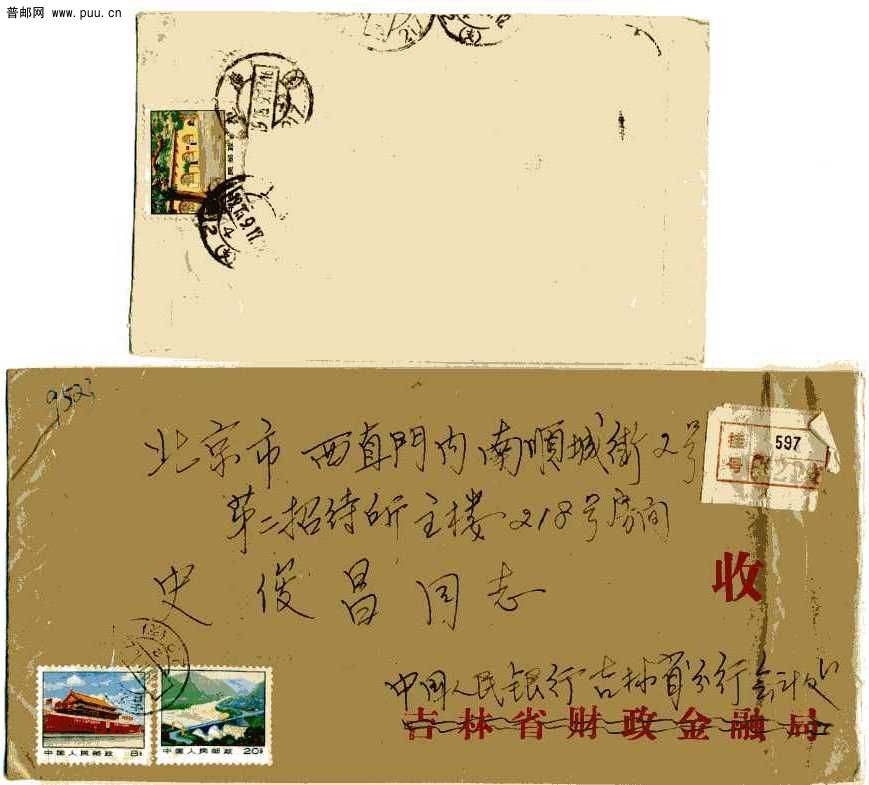 普邮网 www.puu.cn
952
挂号 597
北京市 西直門内南順城街2号
第二招待所主楼218号房间
史俊昌同志
收
中国人民銀行吉林省分行会计处
吉林省财政金融局
中国人民邮政 8分
中国人民邮政 20分